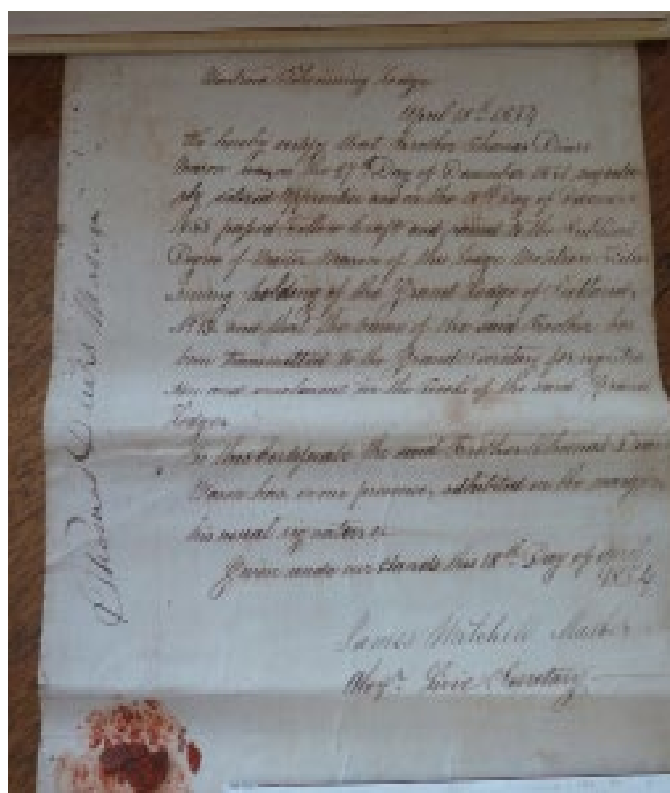 Kilwinning Lodge
April 18th 1854
We hereby certify that Brother Thomas
Mason was on the 27th Day of December
entered Apprentice and on the Day of
passed Fellow Craft and raised to the Sublime
Degree of Master Mason of this Lodge
holding of the Grand Lodge of Scotland,
No and that the name of the said Brother has
been transmitted to the Grand Secretary for
and enrolment in the books of the said Grand
Lodge.
In this Certificate the said Brother Thomas
Mason has in our presence, adhibited on the margin
his usual signature
Given under our Hands this 18th Day of April
1854
James Mitchell Master
Alexr. Secretary
Thomas Mason